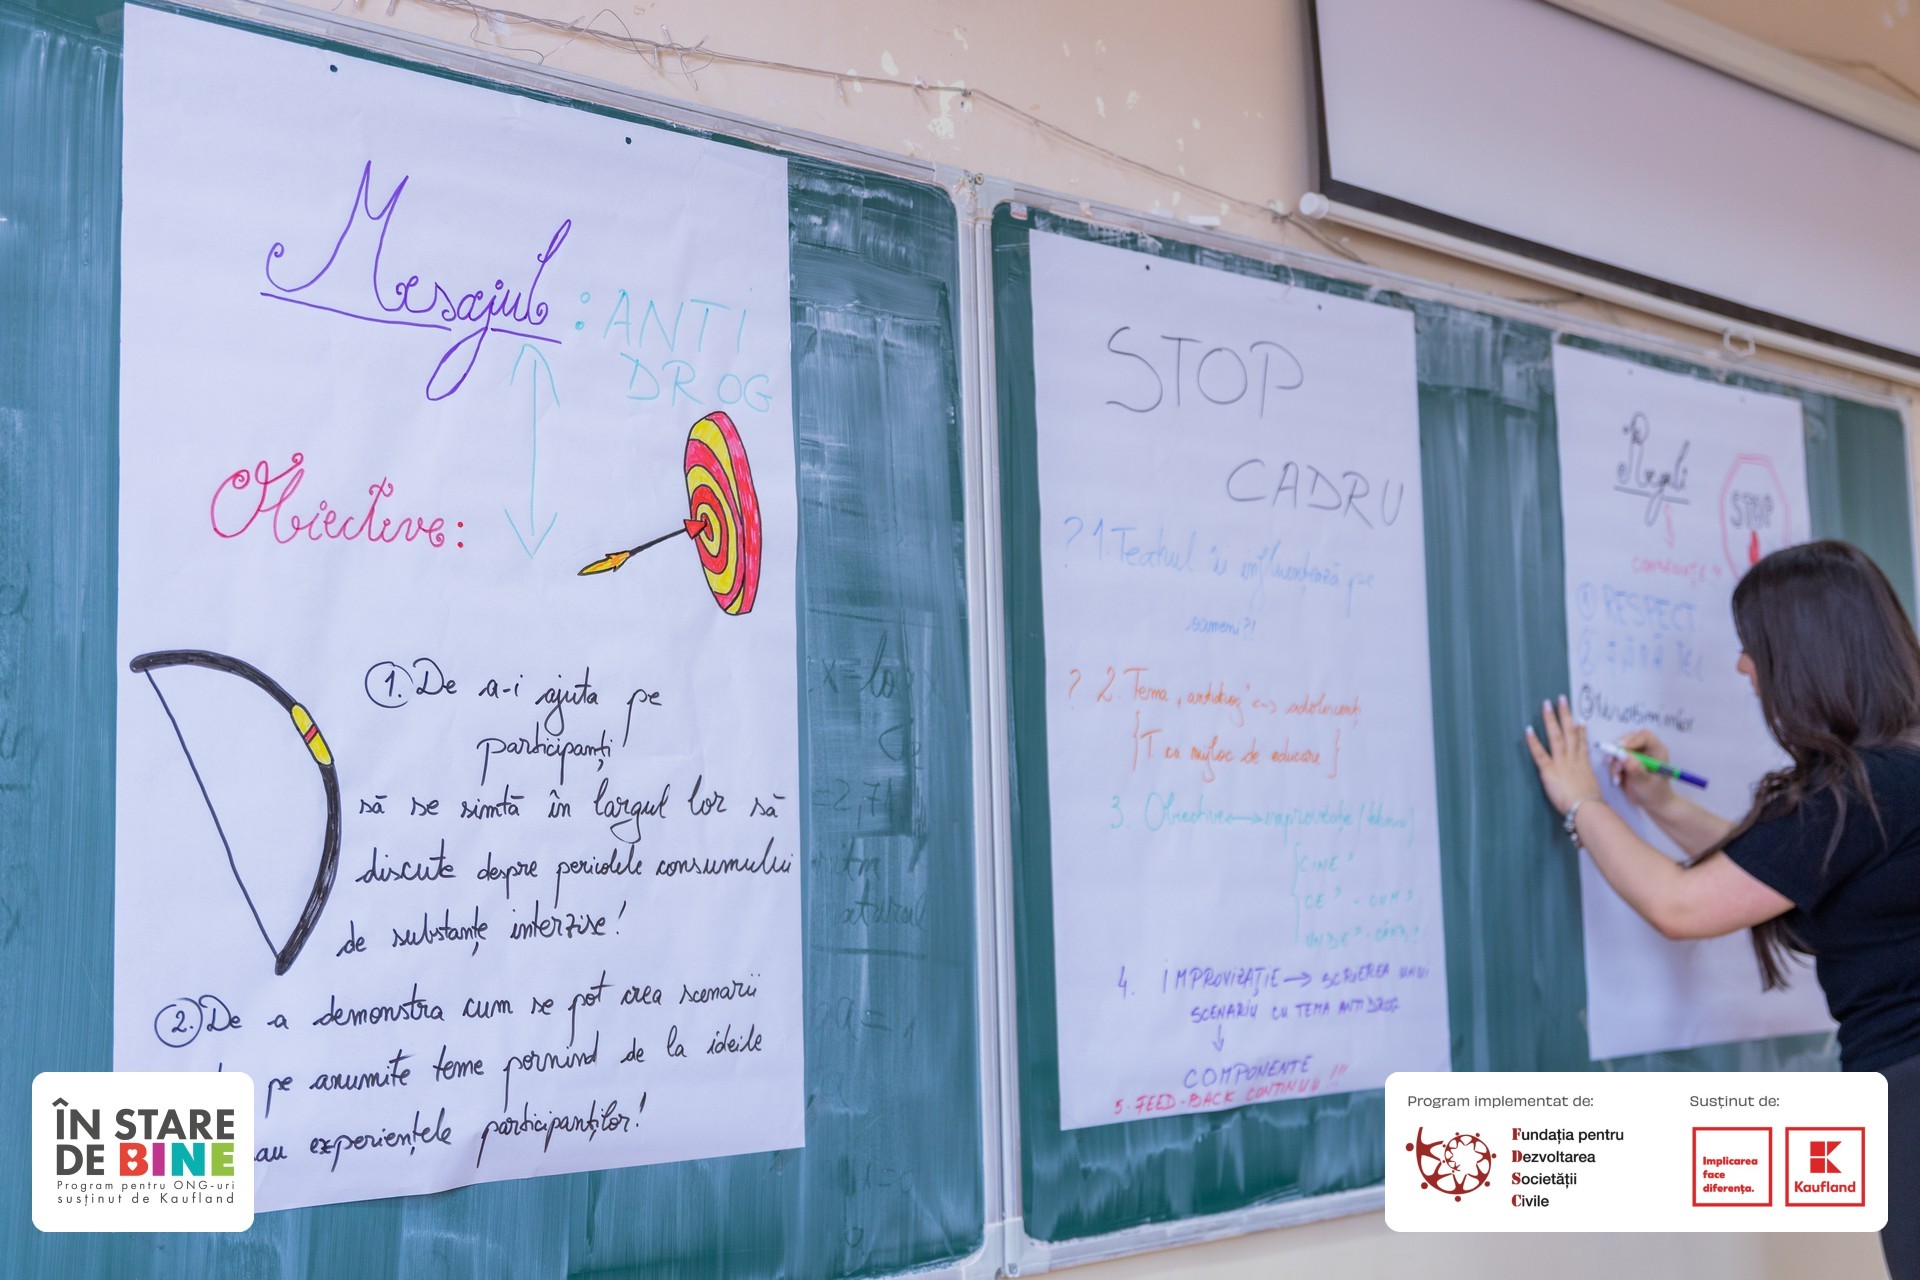 Mesajul : ANTI
DROG
Obiective:
1. De a-i ajuta pe
participanți
să se simtă în largul lor să
discute despre pericolele consumului
de substanțe interzise!
2. De a demonstra cum se pot crea scenarii
pe anumite teme pornind de la ideile
sau experiențele participanților!
STOP
CADRU
? 1. Teatrul îi influențează pe
oameni?!
? 2. Tema "antidrog" <-> adolescenți
{T ca mijloc de educare}
3. Obiective → improvizație/
CINE?
CE? - CUM?
UNDE? - CÂND?!
4. IMPROVIZAȚIE → SCRIEREA UNUI
SCENARIU CU TEMA ANTIDROG
↓
COMPONENTE
5. FEED-BACK CONTINUU!!!
Reguli
STOP
1 RESPECT
2 FĂRĂ TEL
ÎN STARE
DE BINE
Program pentru ONG-uri
susținut de Kaufland
Program implementat de:
Fundația pentru
Dezvoltarea
Societății
Civile
Susținut de:
Implicarea
face
diferența.
Kaufland